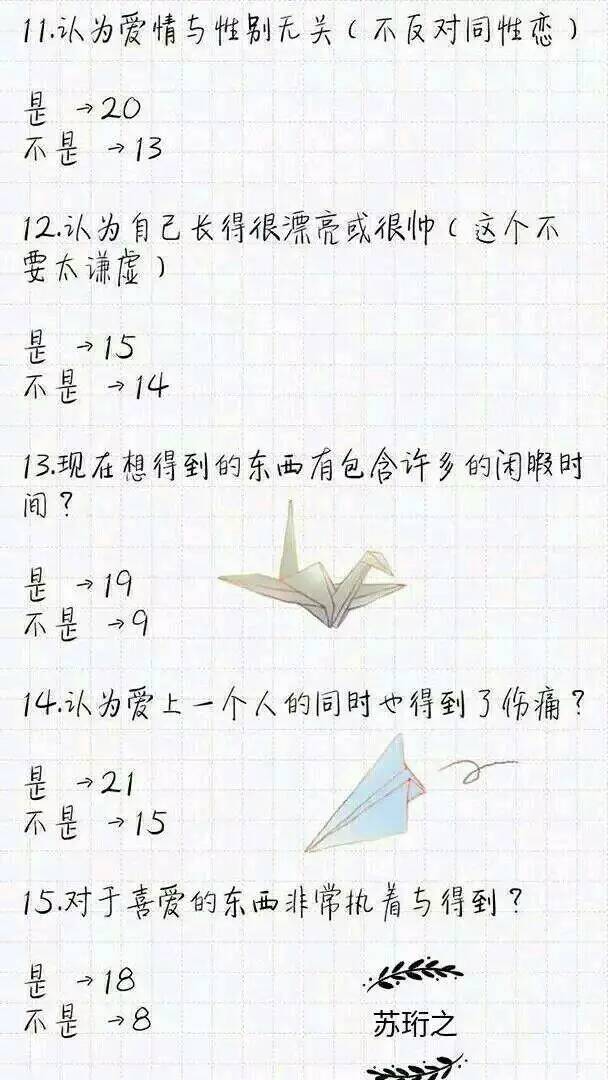 11.认为爱情与性别无关（不反对同性恋）
是 →20
不是 →13
12.认为自己长得很漂亮或很帅（这个不
要太谦虚）
是 →15
不是 →14
13.现在想得到的东西有包含许多的闲暇时
间？
是 →19
不是 →9
14.认为爱上一个人的同时也得到了伤痛？
是 →21
不是 →15
15.对于喜爱的东西非常执着与得到？
是 →18
不是 →8
苏珩之